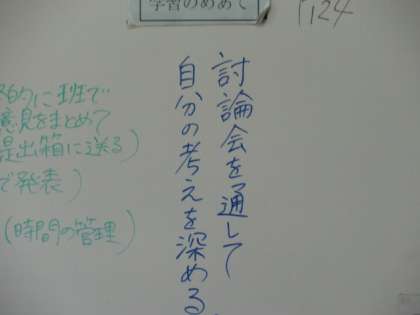 学習のめあて
P124
討論会を通して
自分の考えを深める。
的に班で
意見をまとめて
提出箱に送る)
で発表)
(時間の管理)